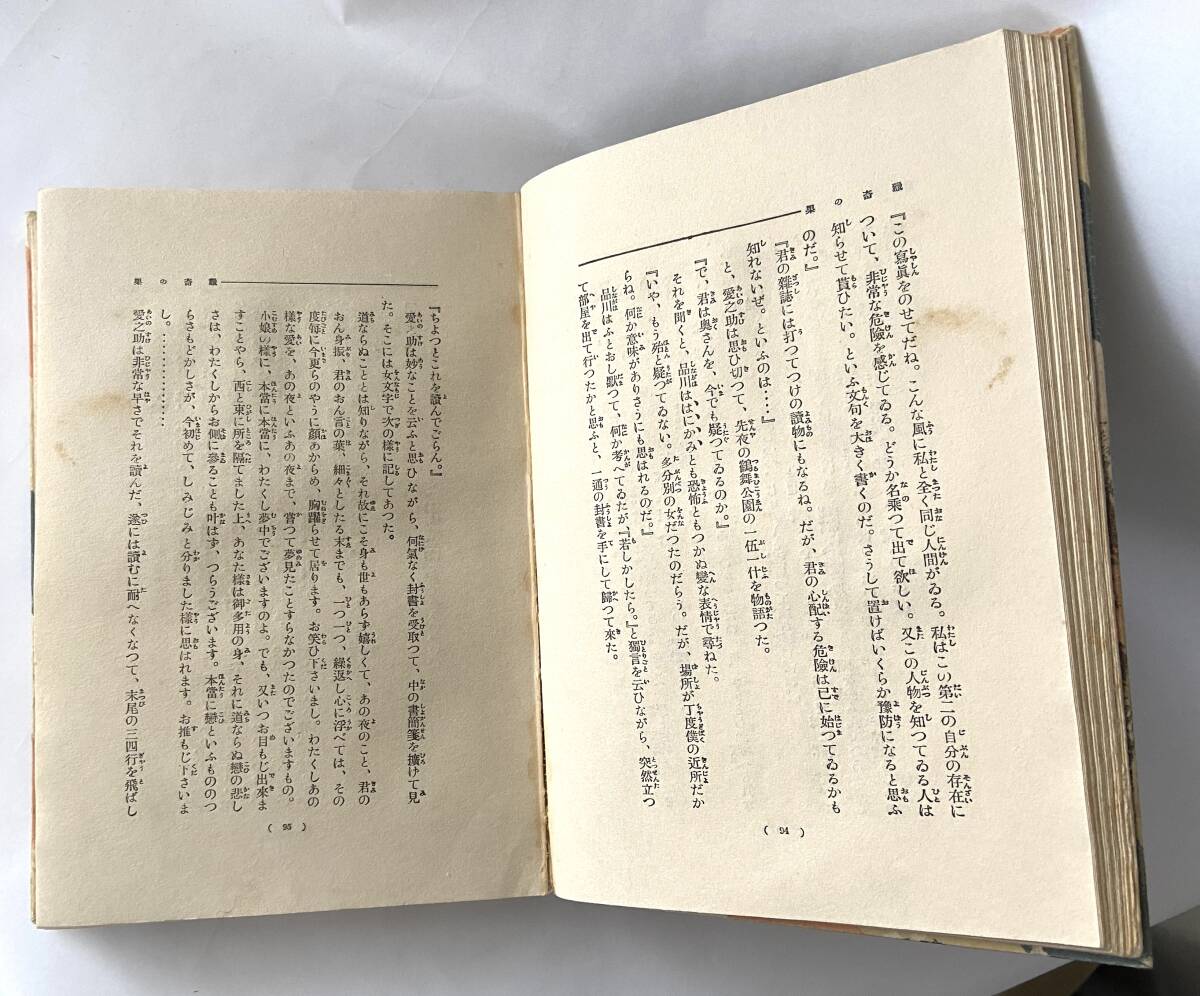 獵奇の果
『この寫眞をのせてだね。こんな風に私と全く同じ人間がゐる。私はこの第二の自分の存在に
ついて、非常な危險を感じてゐる。どうか名乘つて出て欲しい。又この人物を知つてゐる人は
知らせて貰ひたい。といふ文句を大きく書くのだ。さうして置けばいくらか豫防になると思ふ
のだ。』
『君の雜誌には打つてつけの讀物にもなるね。だが、君の心配する危險は已に始つてゐるかも
知れないぜ。といふのは‥‥』
と、愛之助は思ひ切つて、先夜の鶴舞公園の一伍一什を物語つた。
『で、君は奧さんを、今でも疑つてゐるのか。』
それを聞くと、品川ははにかみとも恐怖ともつかぬ變な表情で尋ねた。
『いや、もう殆ど疑つてゐない。多分別の女だつたのだらう。だが、場所が丁度僕の近所だか
らね。何か意味がありさうにも思はれるのだ。』
品川はふとおし默つて、何か考へてゐたが、『若しかしたら。』と獨言を云ひながら、突然立つ
て部屋を出て行つたかと思ふと、一通の封書を手にして歸つて來た。
( 94 )
獵奇の果
『ちよつとこれを讀んでごらん。』
愛之助は妙なことを云ふと思ひながら、何氣なく封書を受取つて、中の書簡箋を擴けて見
た。そこには女文字で次の樣に記してあつた。
道ならぬこととは知りながら、それ故にこそ身も世もあらず嬉しくて、あの夜のこと、君の
おん身振、君のおん言の葉、細々としたる末までも、一つ一つ、繰返し心に浮べては、その
度每に今更らのやうに顏あからめ、胸躍らせて居ります。お笑ひ下さいまし。わたくしあの
樣な愛を、あの夜といふあの夜まで、嘗つて夢見たことすらなかつたのでございますもの。
小娘の樣に、本當に本當に、わたくし夢中でございますのよ。でも、又いつお目もじ出來ま
すことやら、西と東に所を隔てました上、あなた樣は御多用の身、それに道ならぬ戀の悲し
さは、わたくしからお側に參ることも叶はず、つらうございます。本當に戀といふもののつ
らさもどかしさが、今初めて、しみじみと分りました樣に思はれます。お推もじ下さいま
し。‥‥‥‥‥‥‥‥
愛之助は非常な早さでそれを讀んだ、遂には讀むに耐へなくなつて、末尾の三四行を飛ばし
( 95 )